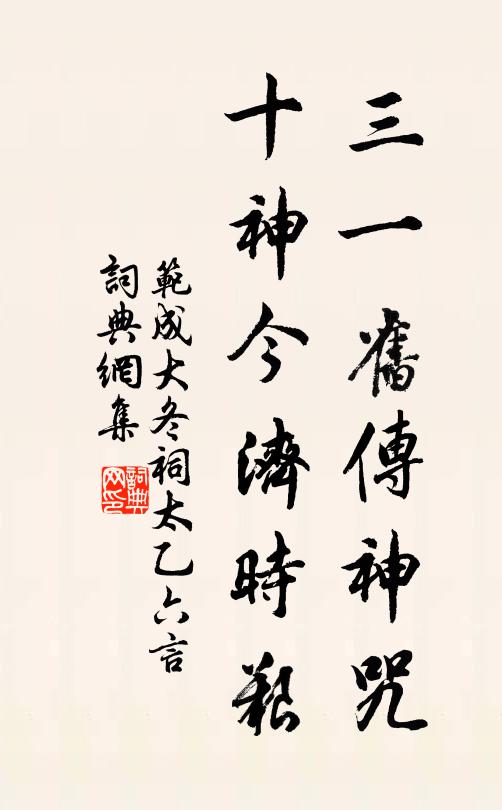 三一舊傳神咒
十神今濟時艱
範成大冬祠太乙六言
詞典網集
詞典網印